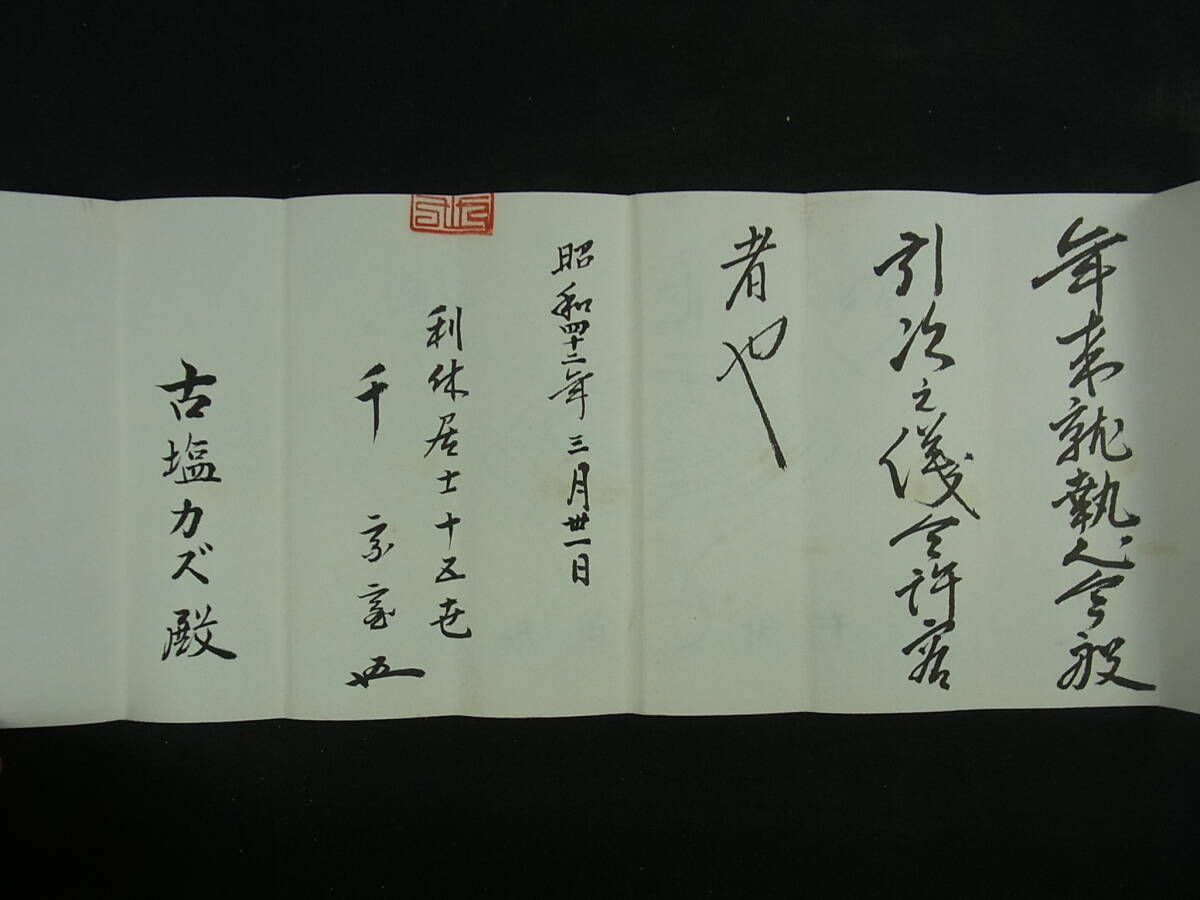 年来就執心今般
引次之儀令許容
者也
昭和四十二年三月卅一日
利休居士十五世
千宗室
古塩カズ殿